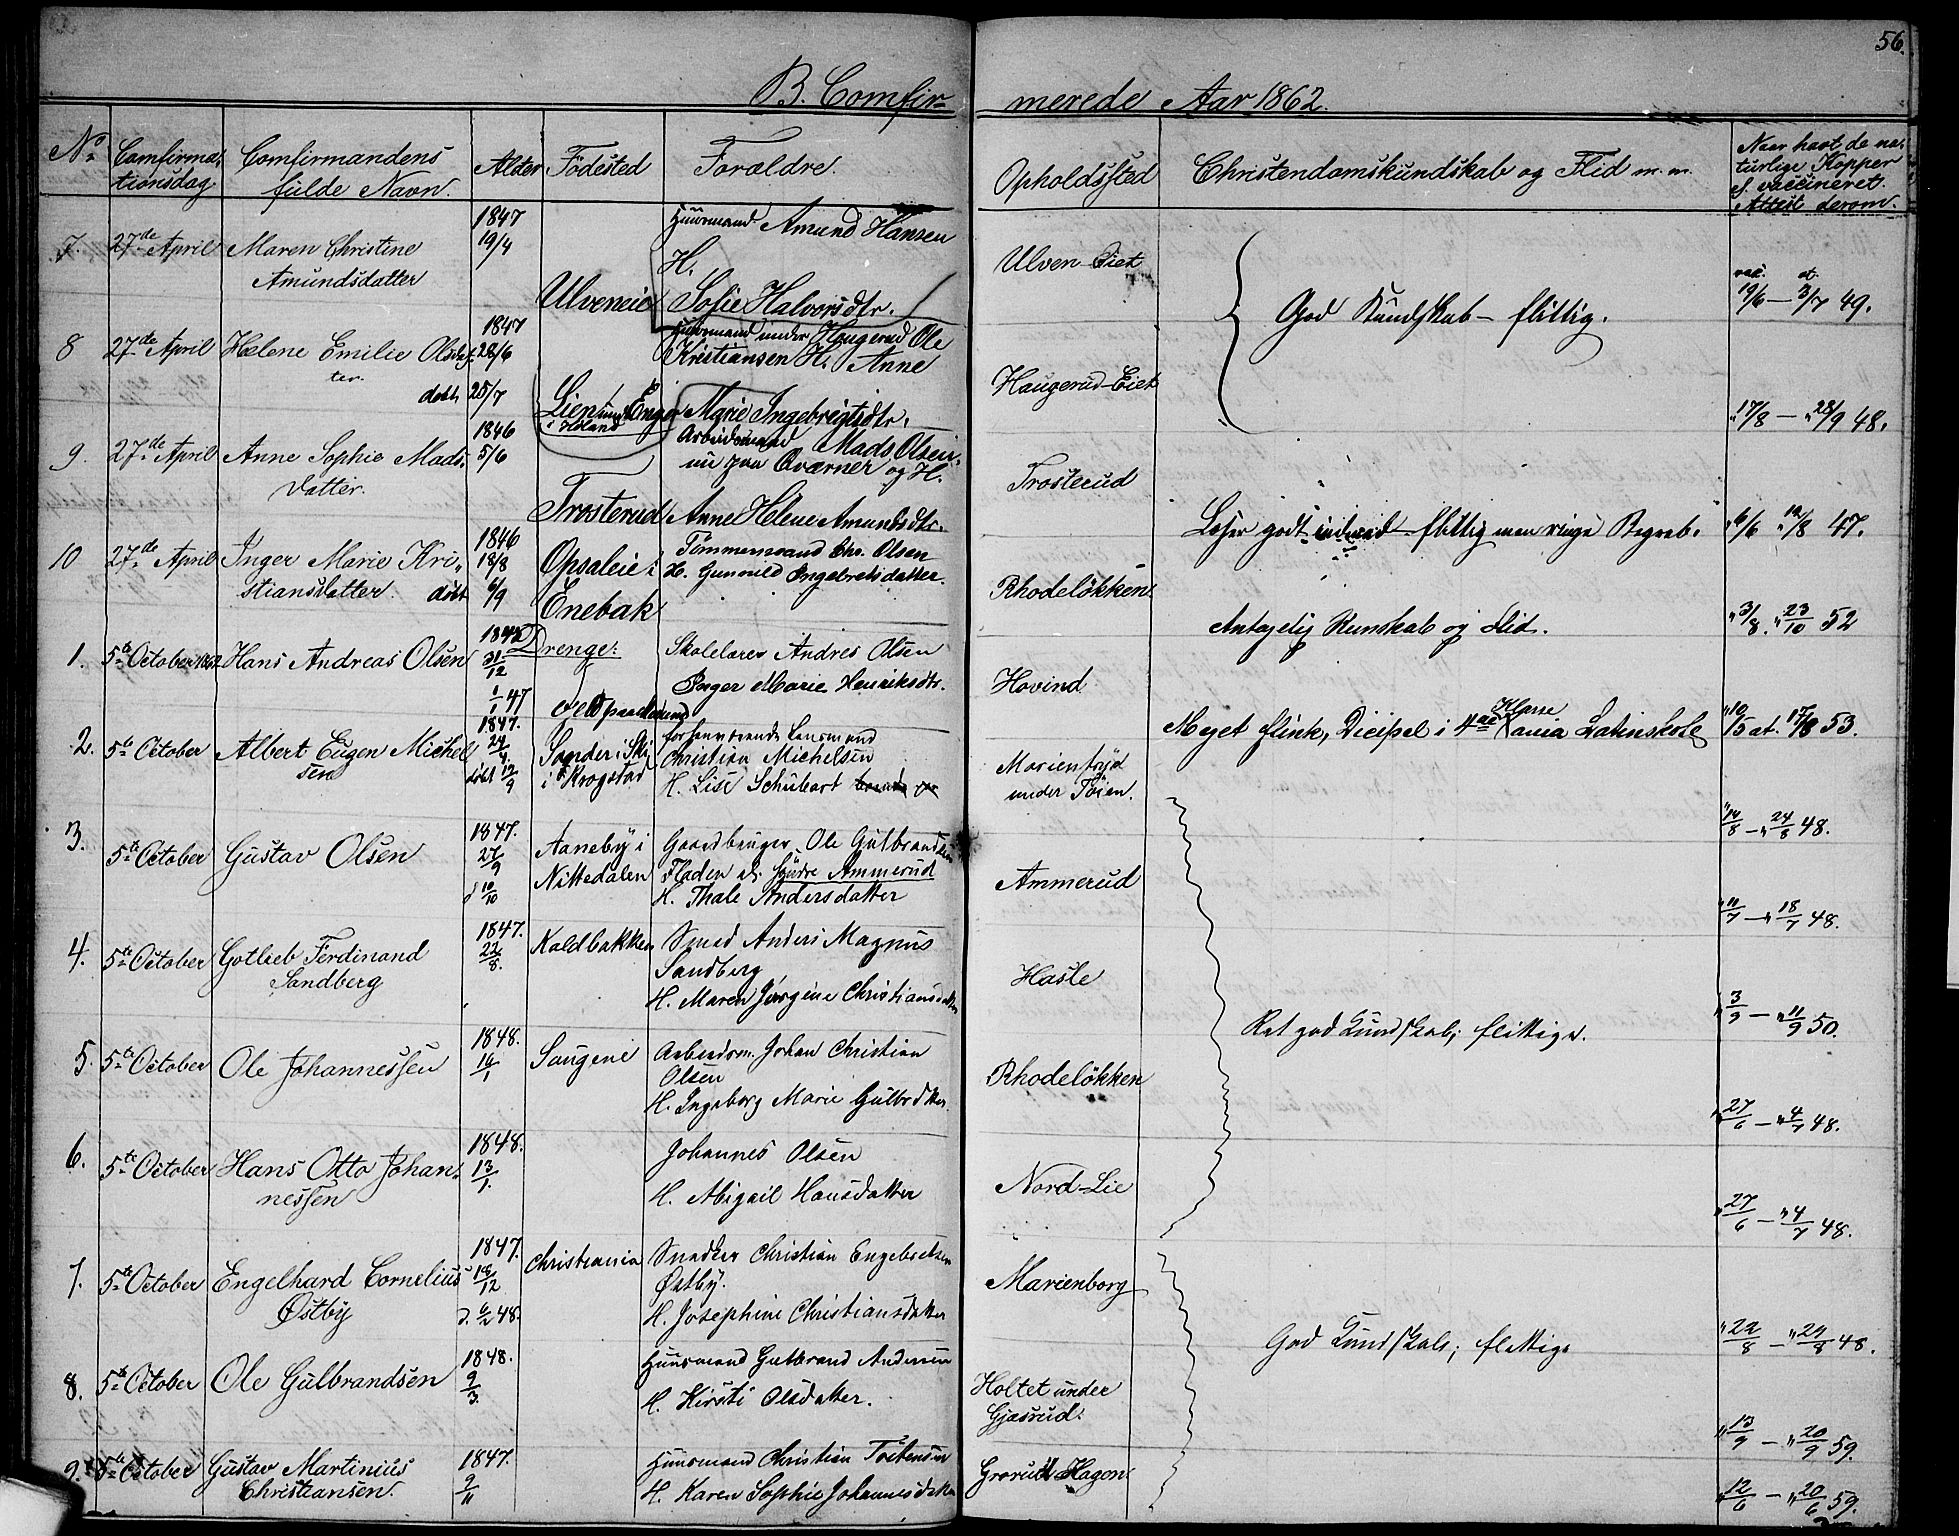 56.
B. Comfir-
merede Aar 1862.
No Comfirma- Comfirmandens Alder Födested Forældre. Opholdssted Christendomskundskab og Flid m.m. Naar havt de na-
tionsdag fulde Navn. turlige Kopper
el. vaccineret.
Attest derom.
7. 27de April Maren Christine 1847 Huusmand Amund Hansen Ulven Eiet
Amundsdatter 19/4 H. vac. at.
Ulveneie Sofie Halvorsdtr. God Kundskab - flittig. 19/6 - 3/7 49.
8 27de April Helene Emilie Olsdat- 1847 Huusmand under Haugerud Ole Haugerud-Eiet
ter. 28/6 Kristiansen H. Anne
döbt 25/7 Lien Enger Marie Ingebrigtsdtr. 17/8 - 28/9 48.
i Höland
9. 27de April Anne Sophie Mads- 1846 Arbeidsmand Mads Olsen Trosterud
datter. 5/6 nu paa Qværner og H.
Trosterud Anne Helene Amundsdtr. Læser godt indenad flittig men ringe Begreb. 6/6 12/8 47.
10 27de April Inger Marie Kri- 1846 Opsaleie i Tömmermand Chr. Olsen Rhodelökken
stiansdatter. 18/8 Enebak H. Gunnild Ingebretsdatter.
döbt 6/9 Antagelig Kunskab og Flid. 3/8. 23/10 52
Drenge:
1. 5te October 1862 Hans Andreas Olsen 31/12 Skolelærer Andres Olsen Hovind
1/1 47 Inger Marie Henriksdtr. Meget flink, Dicipel i 4de Klasse Xania Latinskole 10/5 at. 17/8 53.
2. 5te October Albert Eugen Michel 1847. Sander i Ski forhenværende Lensmand Marienfryd
sen 24/4. i Krogstad Christian Michelsen under Töien.
döbt 12/9 H. Lise Schubart 14/8 - 24/8 48.
3. 5te October Gustav Olsen 1847. Aaneby i Gaardbruger Ole Gulbrandsen Ammerud
27/9 Nittedalen Fladen el. Søndre Ammerud
d 10/10 H. Thale Andersdatter 11/7 - 18/7 48.
4. 5te October Gotlieb Ferdinand 1847. Kaldbakken Smed Anders Magnus Hasle
Sandberg 22/8. Sandberg
H. Maren Jörgine Christiansdatter Ret god Kundskab; flittige. 3/9 - 11/9 50.
5. 5te October Ole Johannessen 1848. Saugeni Arbeidsm. Johan Christian Rhodelökken
16/1 Olsen
H. Ingeborg Marie Gulbrdtter 27/6 - 4/7 48.
6. 5te October Hans Otto Johan- 1848. Johannes Olsen Nord-Lie
nessen 13/1. H. Abigail Hansdatter 27/6 - 4/7 48.
7. 5te October Engelhard Cornelius 1847. Christiania Snedker Christian Engebretsen Marienborg
Østby 18/12 Østby.
d. 6/2 48. H. Josephine Christiansdatter God Kundskab; flittige 22/8 - 29/8 48.
8. 5te October Ole Gulbrandsen 1848. Huusmand Gulbrand Andersen Holtet under
9/3. H. Kirsti Olsdatter. Gjæsrud. 13/9 - 20/9 59.
9. 5te October Gustav Martinius 1847. Huusmand Christian Torstensen Grorud Hagen
Christiansen. 9/11 H. Karen Sophie Johannesdatter 12/6 - 20/6 59.